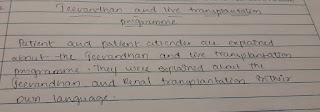 Jeevandhan and live transplantation
programme
Patient and patient attender are explained
about the Jeevandhan and live transplantation
programme. They were explained about the
Jeevandhan and Renal transplantation in their
own language.